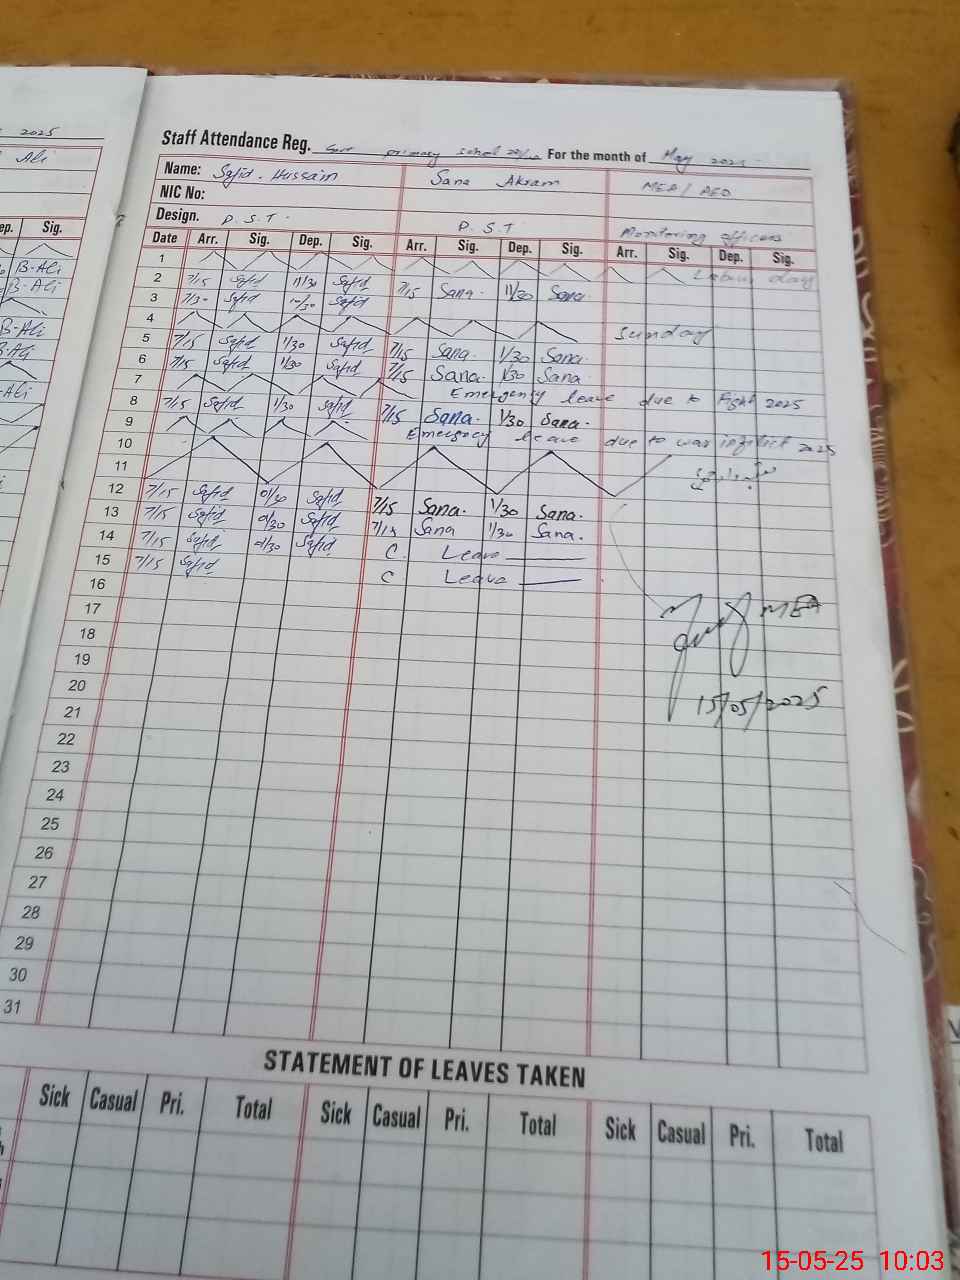 2025
Ali
Staff Attendance Reg. primary For the month of May 2025
Name: Sajid . Hussain Sana Akram MEA / AEO
NIC No:
Design. P . S . T . P . S . T Monitoring officers
Date Arr. Sig. Dep. Sig. Arr. Sig. Dep. Sig. Arr. Sig. Dep. Sig.
ep. Sig.
B-Ali
B-Ali
B-Ali
-Ali
1 Labour day
2 7/15 Sajid 11/30 Sajid 7/15 Sana. 11/30 Sana.
3 Sajid Sajid
4 Sunday
5 7/15 Sajid 1/30 Sajid 7/15 Sana. 1/30 Sana.
6 7/15 Sajid 1/30 Sajid 7/15 Sana. 1/30 Sana.
7 Emergency leave due to 2025
8 7/15 Sajid 1/30 Sajid. 7/15 Sana. 1/30 Sana.
9 Emergency leave due to war 2025
10
11
12 7/15 Sajid 01/30 Sajid 7/15 Sana. 1/30 Sana.
13 7/15 Sajid 01/30 Sajid 7/15 Sana 1/30 Sana.
14 7/15 Sajid 01/30 Sajid C. Leave
15 7/15 Sajid C Leave
16
17 MEA
18
19
20
21 15/05/2025
22
23
24
25
26
27
28
29
30
31
STATEMENT OF LEAVES TAKEN
Sick Casual Pri. Total Sick Casual Pri. Total Sick Casual Pri. Total
15-05-25 10:03